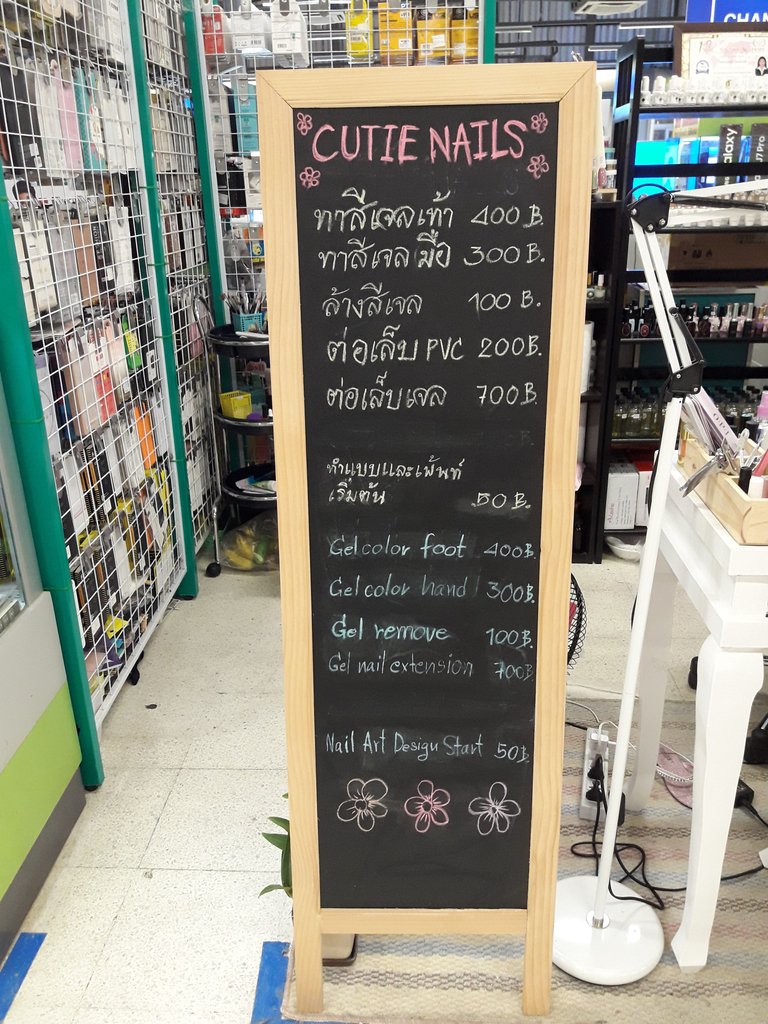 CHAN
CUTIE NAILS
ทาสีเจลเท้า 400 B.
ทาสีเจล มือ 300 B.
ล้างสีเจล 100 B.
ต่อเล็บ PVC 200 B.
ต่อเล็บเจล 700 B.
ทำแบบและเพ้นท์
เริ่มต้น 50 B.
Gel color foot 400 B.
Gel color hand 300 B.
Gel remove 100 B.
Gel nail extension 700 B
Nail Art Design Start 50 B
alaxy
J7 Pro